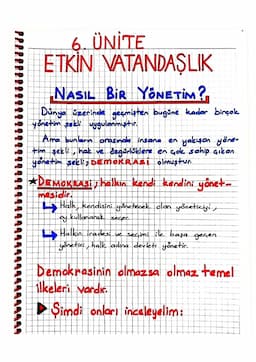 6. ÜNİTE
ETKİN VATANDAŞLIK
NASIL BİR YÖNETİM?
Dünya üzerinde geçmişten bugüne kadar birçok
yönetim şekli uygulanmıştır.
Ama bunların arasında insana en yakışan yöne-
tim şekli, hak ve özgürlüklere en çok sahip çıkan
yönetim şekli; DEMOKRASİ olmuştur.
★DEMOKRASİ; halkın kendi kendini yönet-
mesidir.
Halk, kendisini yönetecek olan yöneticiyi,
oy kullanarak seçer.
Halkın iradesi ve seçimi ile başa geçen
yönetici, halk adına devleti yönetir.
Demokrasinin olmazsa olmaz temel
ilkeleri vardır.
▶ Şimdi onları inceleyelim: